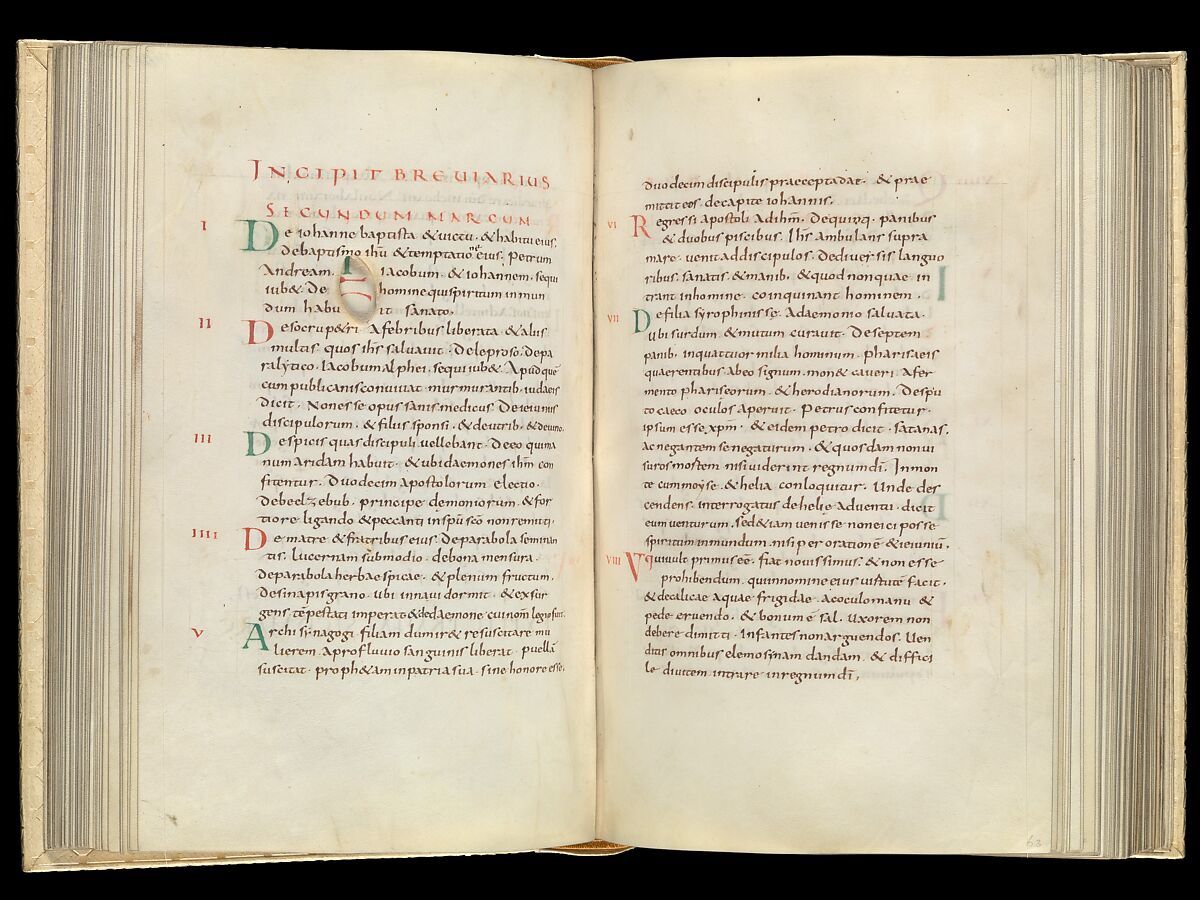 INCIPIT BREUIARIUS
SECUNDUM MARCUM
I
De iohanne baptista & uictu & habitu eius.
de baptismo ihu & temptatione eius. Petrum
Andream. Iacobum & iohannem. sequi
iub& De homine qui spiritum inmun
dum habuit sanato.
II
De socru p&ri a febribus liberata & aliis
multis quos ihs saluauit. De leproso. de pa
ralytico. Iacobum alphei. sequi iub&. Apud que
cum publicanis conuiuat murmurantib. iudaeis
dicit. Non esse opus sanis medicus. De ieiuniis
discipulorum. & filius sponsi. & de utrib. & de uino.
III
De spicis quas discipuli uellebant. De eo qui ma
num aridam habuit. & ubi daemones ihm con
fitentur. Duodecim apostolorum electio.
De beelzebub. principe demoniorum. & for
tiore ligando & peccanti in spu sco non remitti.
IIII
De matre & fratribus eius. De parabola seminan
tis. Lucernam sub modio. de bona mensura.
De parabola herbae spicae. & plenum fructum.
De sinapis grano. ubi in naui dormit. & exsur
gens tempestati imperat & de daemone cui nom legio fuit.
V
Archisynagogi filiam dum ir& resuscitare mu
lierem. A profluuio sanguinis liberat. puellā
suscitat. proph&am in patria sua. sine honore esse.
duodecim discipulis praecepta dat. & prae
mittit eos. de capite iohannis.
VI
Regressi apostoli ad ihm. De quinq. panibus
& duobus piscibus. Ihs ambulans supra
mare. uenit ad discipulos. De diuersis languo
ribus. sanatis. & manib. & quod non quae in
trant in homine. coinquinant hominem.
VII
De filia syrophinisse. A daemonio saluata.
ubi surdum & mutum curauit. De septem
panib. in quattuor milia hominum. pharisaeis
quaerentibus ab eo signum. mon& caueri. A fer
mento phariseorum. & herodianorum. De spu
to caeco oculos aperuit. Petrus confitetur.
ipsum esse xpm. & eidem petro dicit. satanas.
ac negantem se negaturum. & quosdam non ui
suros mortem. nisi uiderint regnum di. In mon
te cum moyse. & helia conloquitur. Unde des
cendens. interrogatus de helie aduentu. dicit
eum uenturum. sed &iam uenisse non eici posse
spiritum inmundum. nisi per orationē & ieiuniū.
VIII
Vt qui uult primus eē. fiat nouissimus. & non esse
prohibendum. qui in nomine eius uirtutē facit.
& de calice aquae frigidae. ac oculo manu &
pede eruendo. & bonum ē sal. Uxorem non
debere dimitti. infantes non arguendos. Uen
ditis omnibus elemosynam dandam. & diffici
le diuitem intrare in regnum di.
63